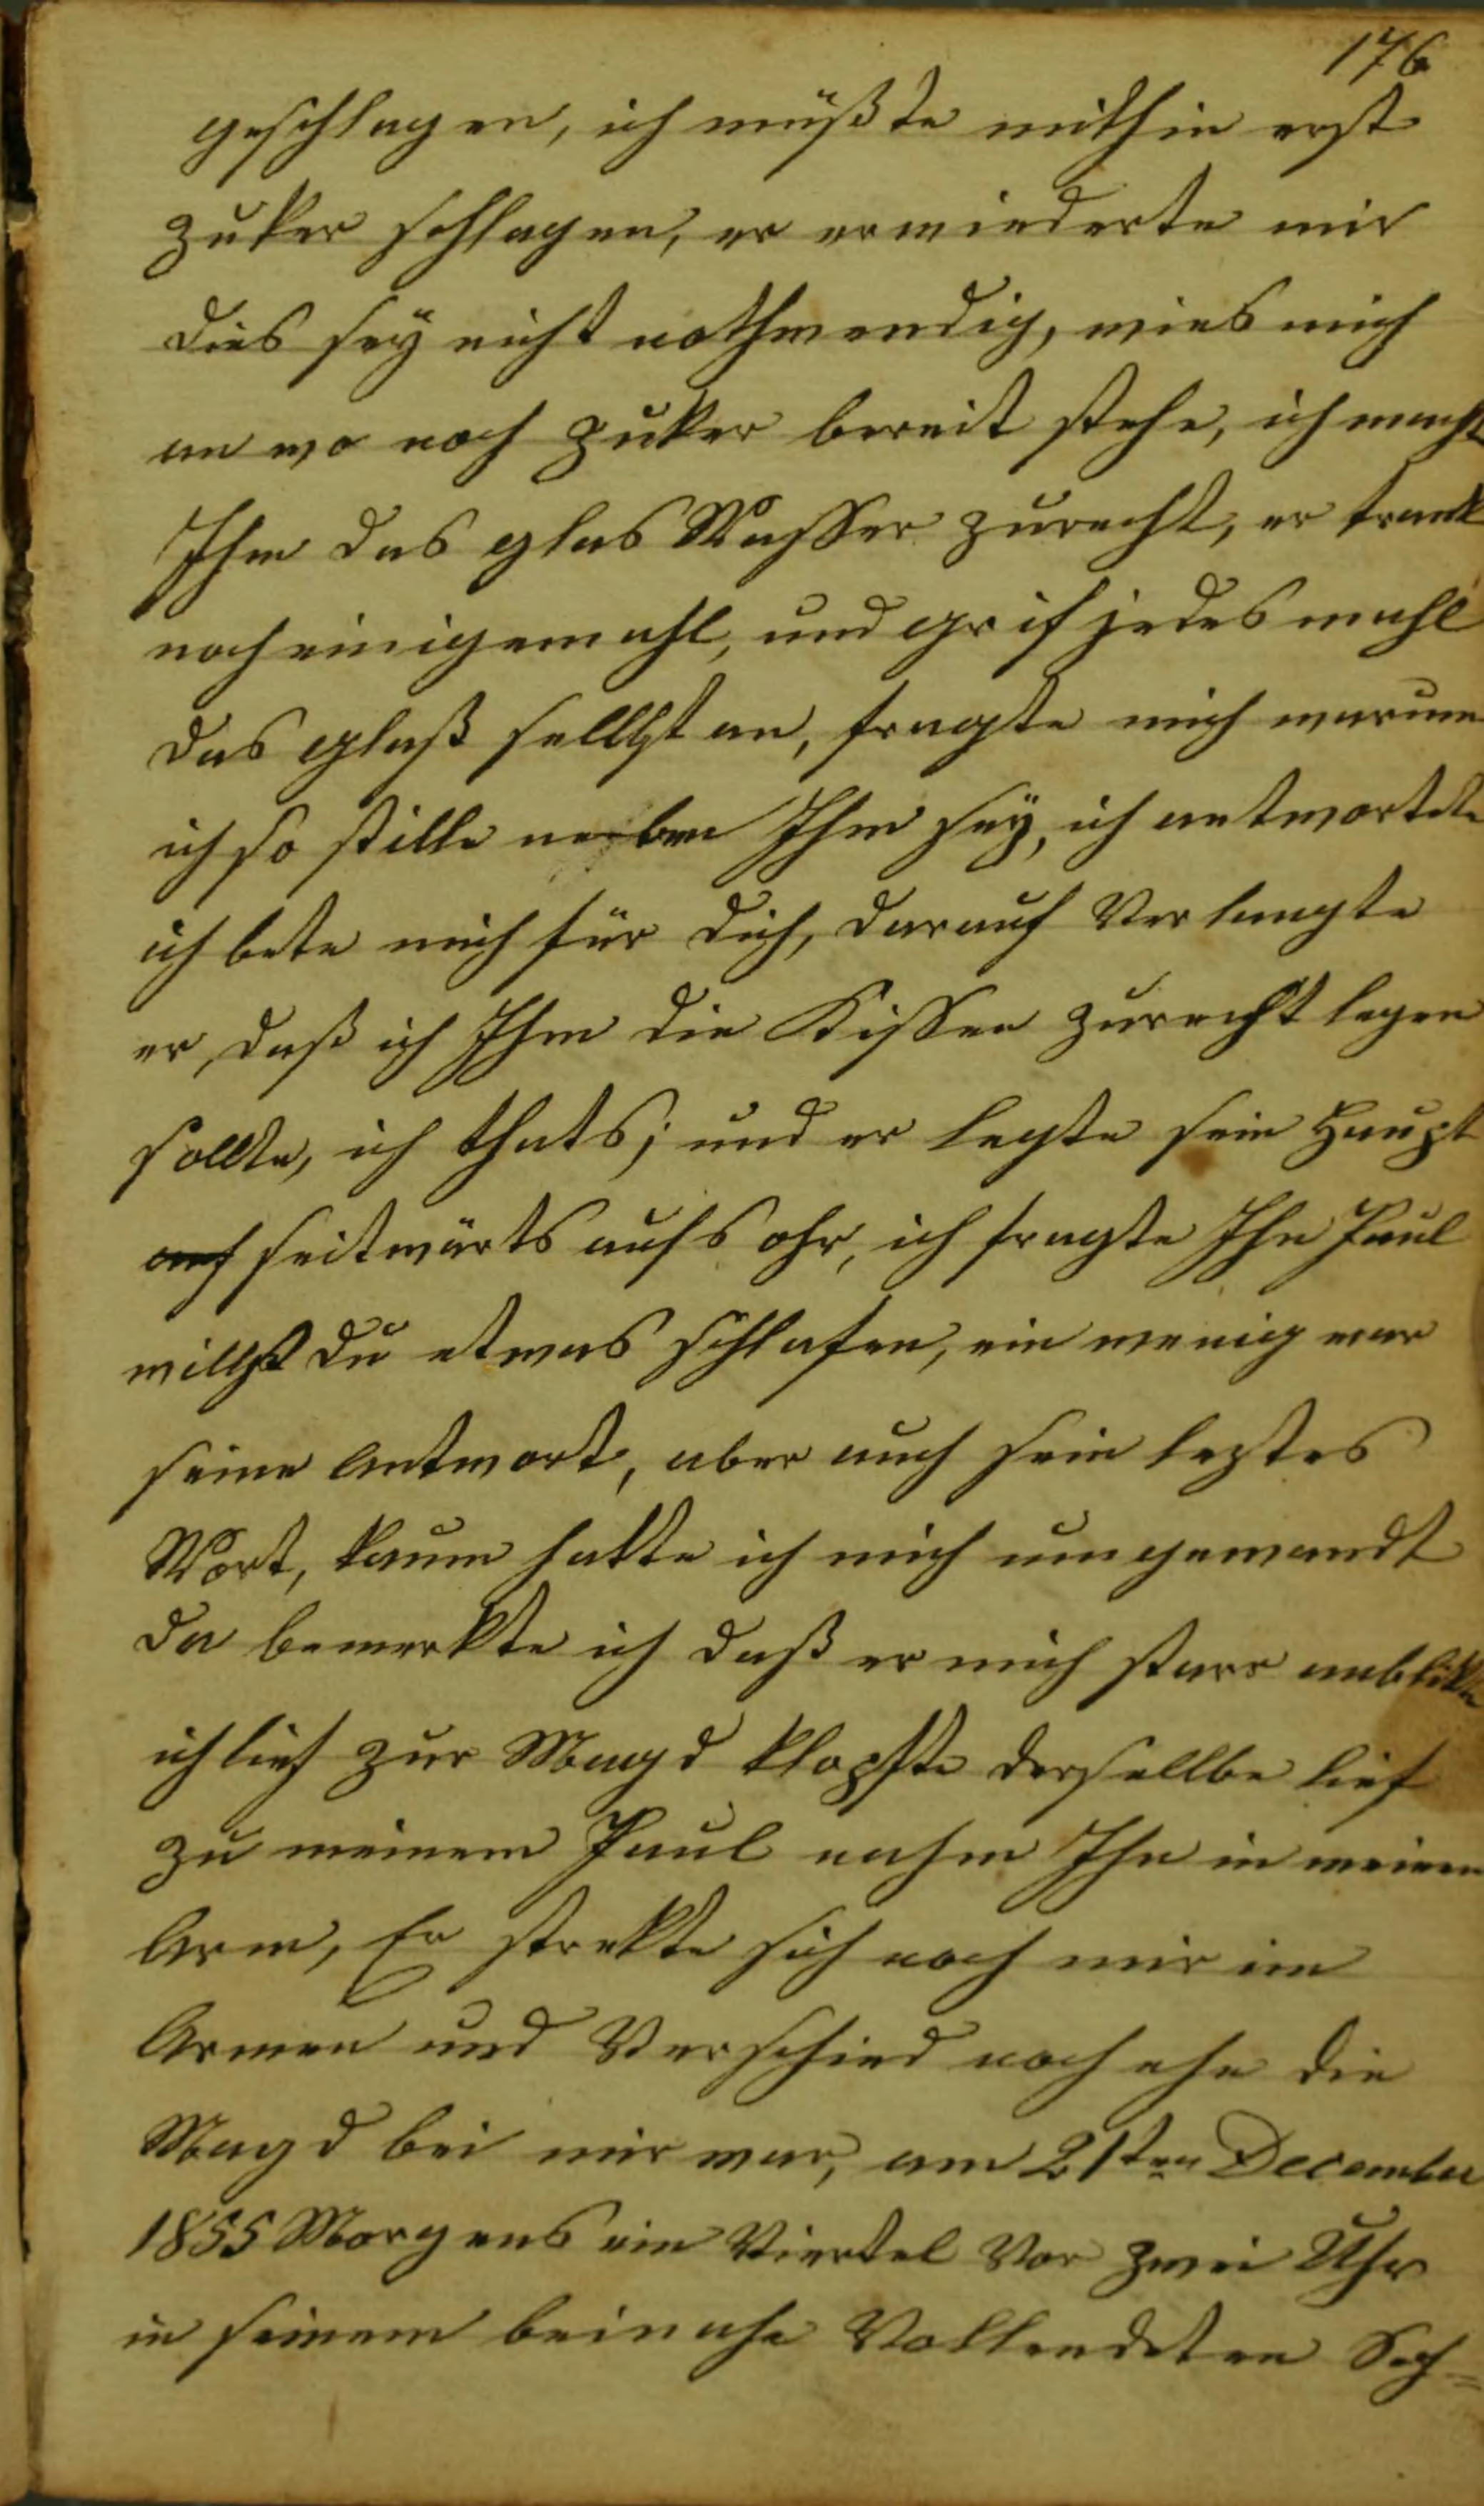 176
geschlagen, ich müßte mithin erst
Zuker schlagen, er erwiederte mir
dies sey nicht nothwendig, wies mich
an wo noch Zuker bereit stehe, ich macht
Ihm das glas Wasser zurecht, er trank
noch einigemahl, und grif jedes mahl
das glaß sellbst an, fragte mich warum
ich so stille neben Ihm sey, ich antwortete
ich bete mich für dich, darauf Verlangte
er, daß ich Ihm die Kissen zurecht legen
sollte, ich thats; und er legte sein Haupt
auf seitwärts aufs ohr, ich fragte Ihn Paul
willst du etwas schlafen, ein wenig war
seine Antwort, aber auch sein leztes
Wort, kaum hatte ich mich umgewandt
da bemerkte ich daß er mich starr anblikte
ich lief zur Magd klopfte dersellbe lief
zu meinem Paul nahm Ihn in meinen
Arm, Er strekte sich noch mir im
Armen und Verschied noch ehe die
Magd bei mir war, am 21sten December
1855 Morgens ein Viertel Vor zwei Uhr
in seinem beinahe Vollendeten Sech=